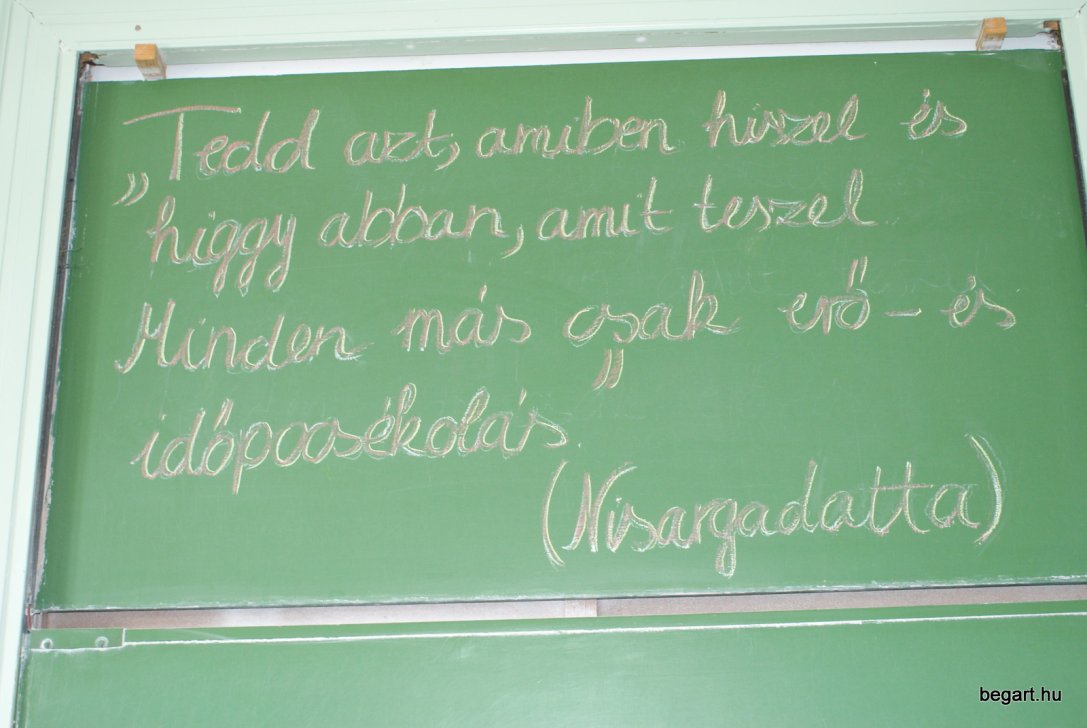 „Tedd azt, amiben hiszel és
higgy abban, amit teszel
Minden más csak erő- és
időpocsékolás."
(Nisargadatta)
begart.hu